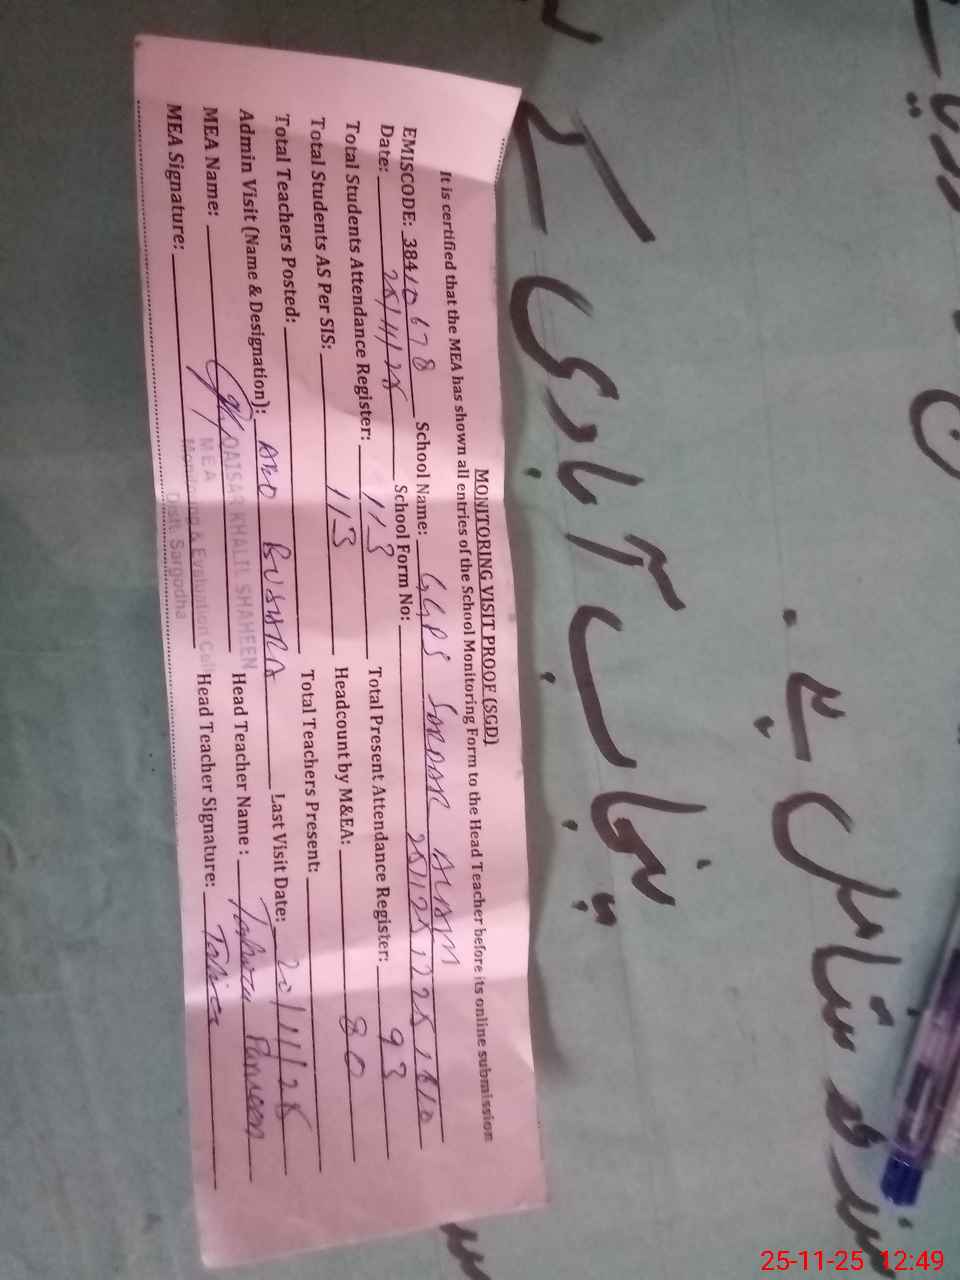 MONITORING VISIT PROOF (SGD)
It is certified that the MEA has shown all entries of the School Monitoring Form to the Head Teacher before its online submission
EMISCODE: 38410678 School Name: GGPS SARDAR ALAM
Date: 25/11/25 School Form No: 2511251225
Total Students Attendance Register: 113 Total Present Attendance Register: 93
Total Students AS Per SIS: 113 Headcount by M&EA: 80
Total Teachers Posted: Total Teachers Present:
Admin Visit (Name & Designation): BUSHRA Last Visit Date: 20/11/25
MEA Name: QAISAR KHALIL SHAHEEN Head Teacher Name : Tahira Parveen
MEA
MEA Signature: Head Teacher Signature: Tahira
Monitoring & Evaluation Cell
Distt. Sargodha
پنجاب
شامل ہے
25-11-25 12:49